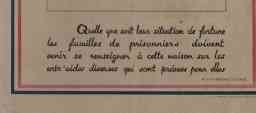 Quelle que soit leur situation de fortune
les familles de prisonniers doivent
venir se renseigner à cette maison sur les
entr'aides diverses qui sont prévues pour elles